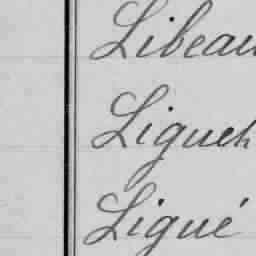 Libeau
Ligueh
Ligué